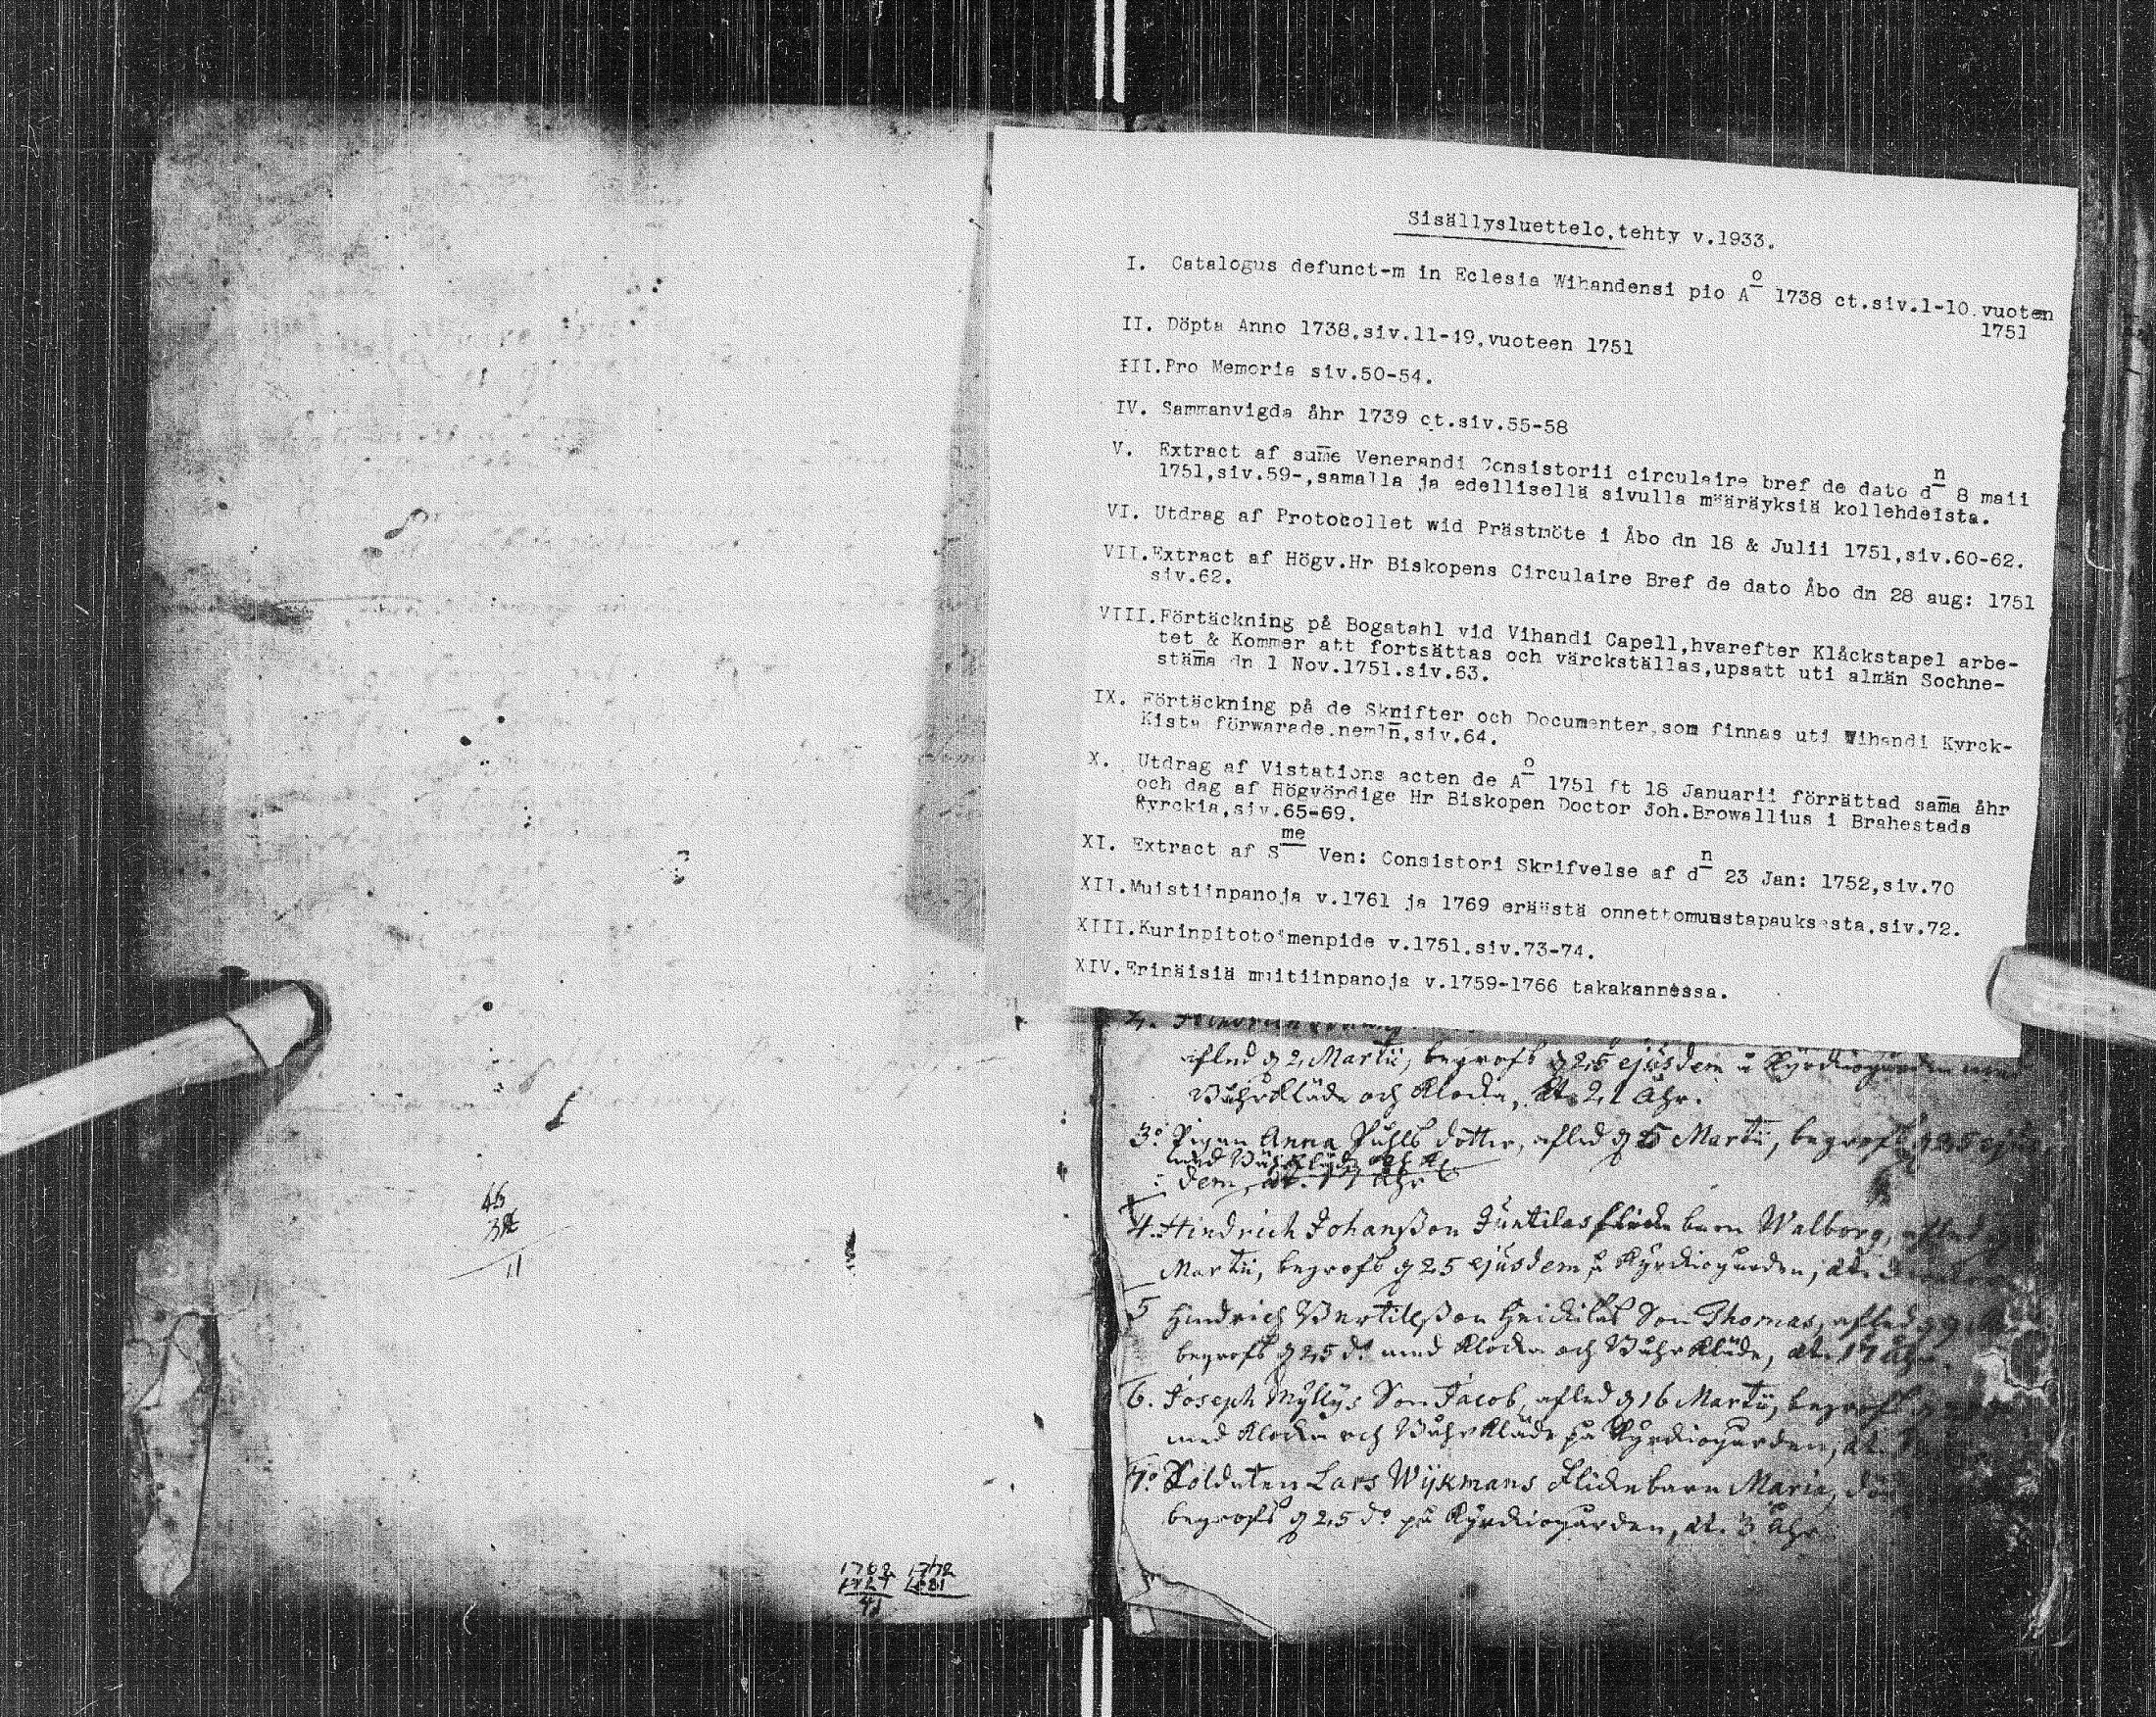 46
11
1768 1772
41
Sisällysluettelo.tehty v.1933.
I. Catalogus defunct-m in Eclesia Wihandensi pio Ao 1738 ct.siv.1-10.vuoten
1751
II. Döpta Anno 1738.siv.11-49,vuoteen 1751
III.Pro Memoria siv.50-54.
IV. Sammanvigda åhr 1739 ct.siv.55-58
V. Extract af sum̄e Venerandi Consistorii circulaire bref de dato dn 8 maii
1751,siv.59-,samalla ja edellisellä sivulla määräyksiä kollehdeista.
VI. Utdrag af Protocollet wid Prästmöte i Åbo dn 18 & Julii 1751,siv.60-62.
VII.Extract af Högv.Hr Biskopens Circulaire Bref de dato Åbo dn 28 aug: 1751
siv.62.
VIII.Förtäckning på Bogatahl vid Vihandi Capell,hvarefter Klåckstapel arbe-
tet & Kommer att fortsättas och värckställas,upsatt uti almän Sochne-
stäm̄a dn 1 Nov.1751.siv.63.
IX. Förtäckning på de Skrifter och Documenter,som finnas uti Wihandi Kyrck-
Kista förwarade.nemln̄,siv.64.
X. Utdrag af Vistations acten de Ao 1751 ft 18 Januarii förrättad sam̄a åhr
och dag af Högvördige Hr Biskopen Doctor Joh.Browallius i Brahestads
Kyrckia,siv.65-69.
XI. Extract af Sme Ven: Consistori Skrifvelse af dn 23 Jan: 1752,siv.70
XII.Muistiinpanoja v.1761 ja 1769 eräästä onnettomuustapauksesta,siv.72.
XIII.Kurinpitotoimenpide v.1751.siv.73-74.
XIV.Erinäisiä muitiinpanoja v.1759-1766 takakannessa.
afled d 2 Martii, begrofs d 25 ejusdem å Kyrkiogården med
Båhrkläde och Klocka, æt. 21 Åhr.
3. Pigan Anna Påhls dotter, afled d 15 Martii, begrofs d 25 ejus
med Båhrkläde och Kl
dem, æt. 17 Åhr
4. Hindrich Johanßon Juntilas flicke barn Walborg, afled d
Martii, begrofs d 25 ejusdem på Kyrkiogården, æt.
5 Hindrich Bertilßon Heickilas Son Thomas, afled d
begrofs d 25 do med Klocka och Båhrkläde, æt. 17 åhr.
6. Joseph Myllys Son Jacob, afled d 16 Martii, begrofs
med Klocka och Båhrkläde på Kyrkiogården, æt.
7. Soldaten Lars Wijkmans Flickebarn Maria, död
begrofs d 25 do på Kyrkiogården, æt. 3 åhr